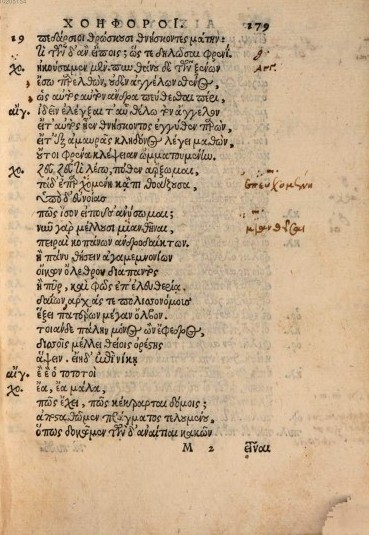 ΧΟΗΦΟΡΟΙ 179
19 πεδάρσιοι θρώσκουσι θνήσκοντες μάτην:
τί τῶνδ' ἂν εἴποις; ὥς τε δηλῶσαι φρενί.
χο. ἠκούσαμεν μὲν. πυνθάνου δὲ τῶν ξένων
ἔσω παρελθών, οὐδὲν ἀγγέλων σθένος,
ὡς αὐτὸν αὐτῶν ἄνδρα πεύθεσθαι πέρι,
αἴγ. ἰδεῖν ἐλέγξαι τ' αὖ θέλω τὸν ἄγγελον
εἴτ' αὐτὸς ἦεν θνήσκοντος ἐγγύθεν παρών,
εἴτ' ἐξ ἀμαυρᾶς κληδόνος λέγει μαθών,
οὔτοι φρένα κλέψειαν ὠμματωμένην.
χο. Ζεῦ, Ζεῦ τί λέγω, πόθεν ἄρξωμαι,
τάδ' ἐπευχομένη κἀπιθοάζουσα, ἐπευχομένη
ὑπὸ δ' εὐνοίας
πῶς ἴσον εἰποῦσ' ἀνύσωμαι;
νῦν γὰρ μέλλουσι μιανθῆναι, μιανθεῖσαι
πειραὶ κοπάνων ἀνδροδαΐκτων.
ἢ πάνυ θήσειν ἀγαμεμνονίων
οἴκων ὄλεθρον διαπαντὸς
ἢ πῦρ, καὶ φῶς ἐπ' ἐλευθερίᾳ,
δαίων ἀρχάς τε πολισσονόμοις
ἕξει πατέρων μέγαν ὄλβον.
τοιάνδε πάλην μόνος ὢν ἔφεδρος
δισσοῖς μέλλει θείοις ὀρέστης
ἅψειν. εἴη δ' ἐπὶ νίκῃ
αἴγ. ἒ ἒ ὀτοτοτοῖ
χο. ἔα, ἔα μάλα,
πῶς ἔχει, πῶς κέκρανται δόμοις;
ἀποσταθῶμεν πράγματος τελουμένου,
ὅπως δοκῶμεν τῶνδ' ἀναίτιαι κακῶν
Μ 2 εἶναι